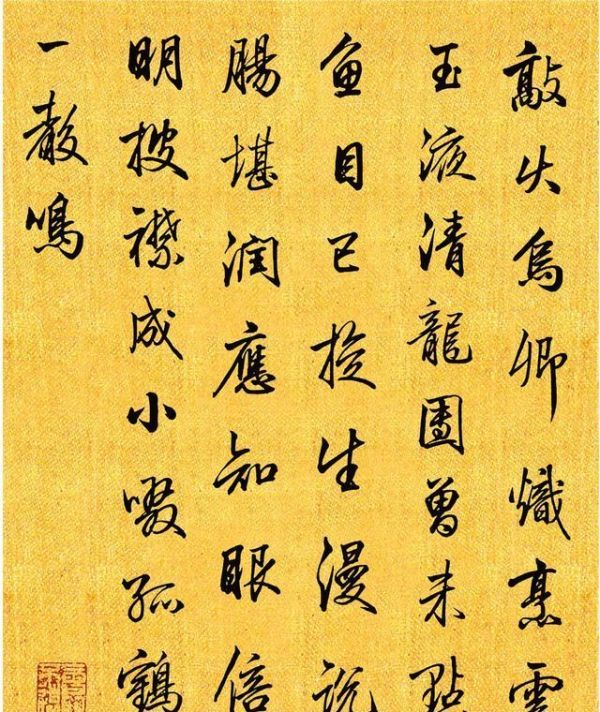 敲火烏卿熾烹雲
玉液清龍團曾未點
魚目已撿生漫說
腸堪潤應知眼倍
明披襟成小啜孤鶴
一聲鳴